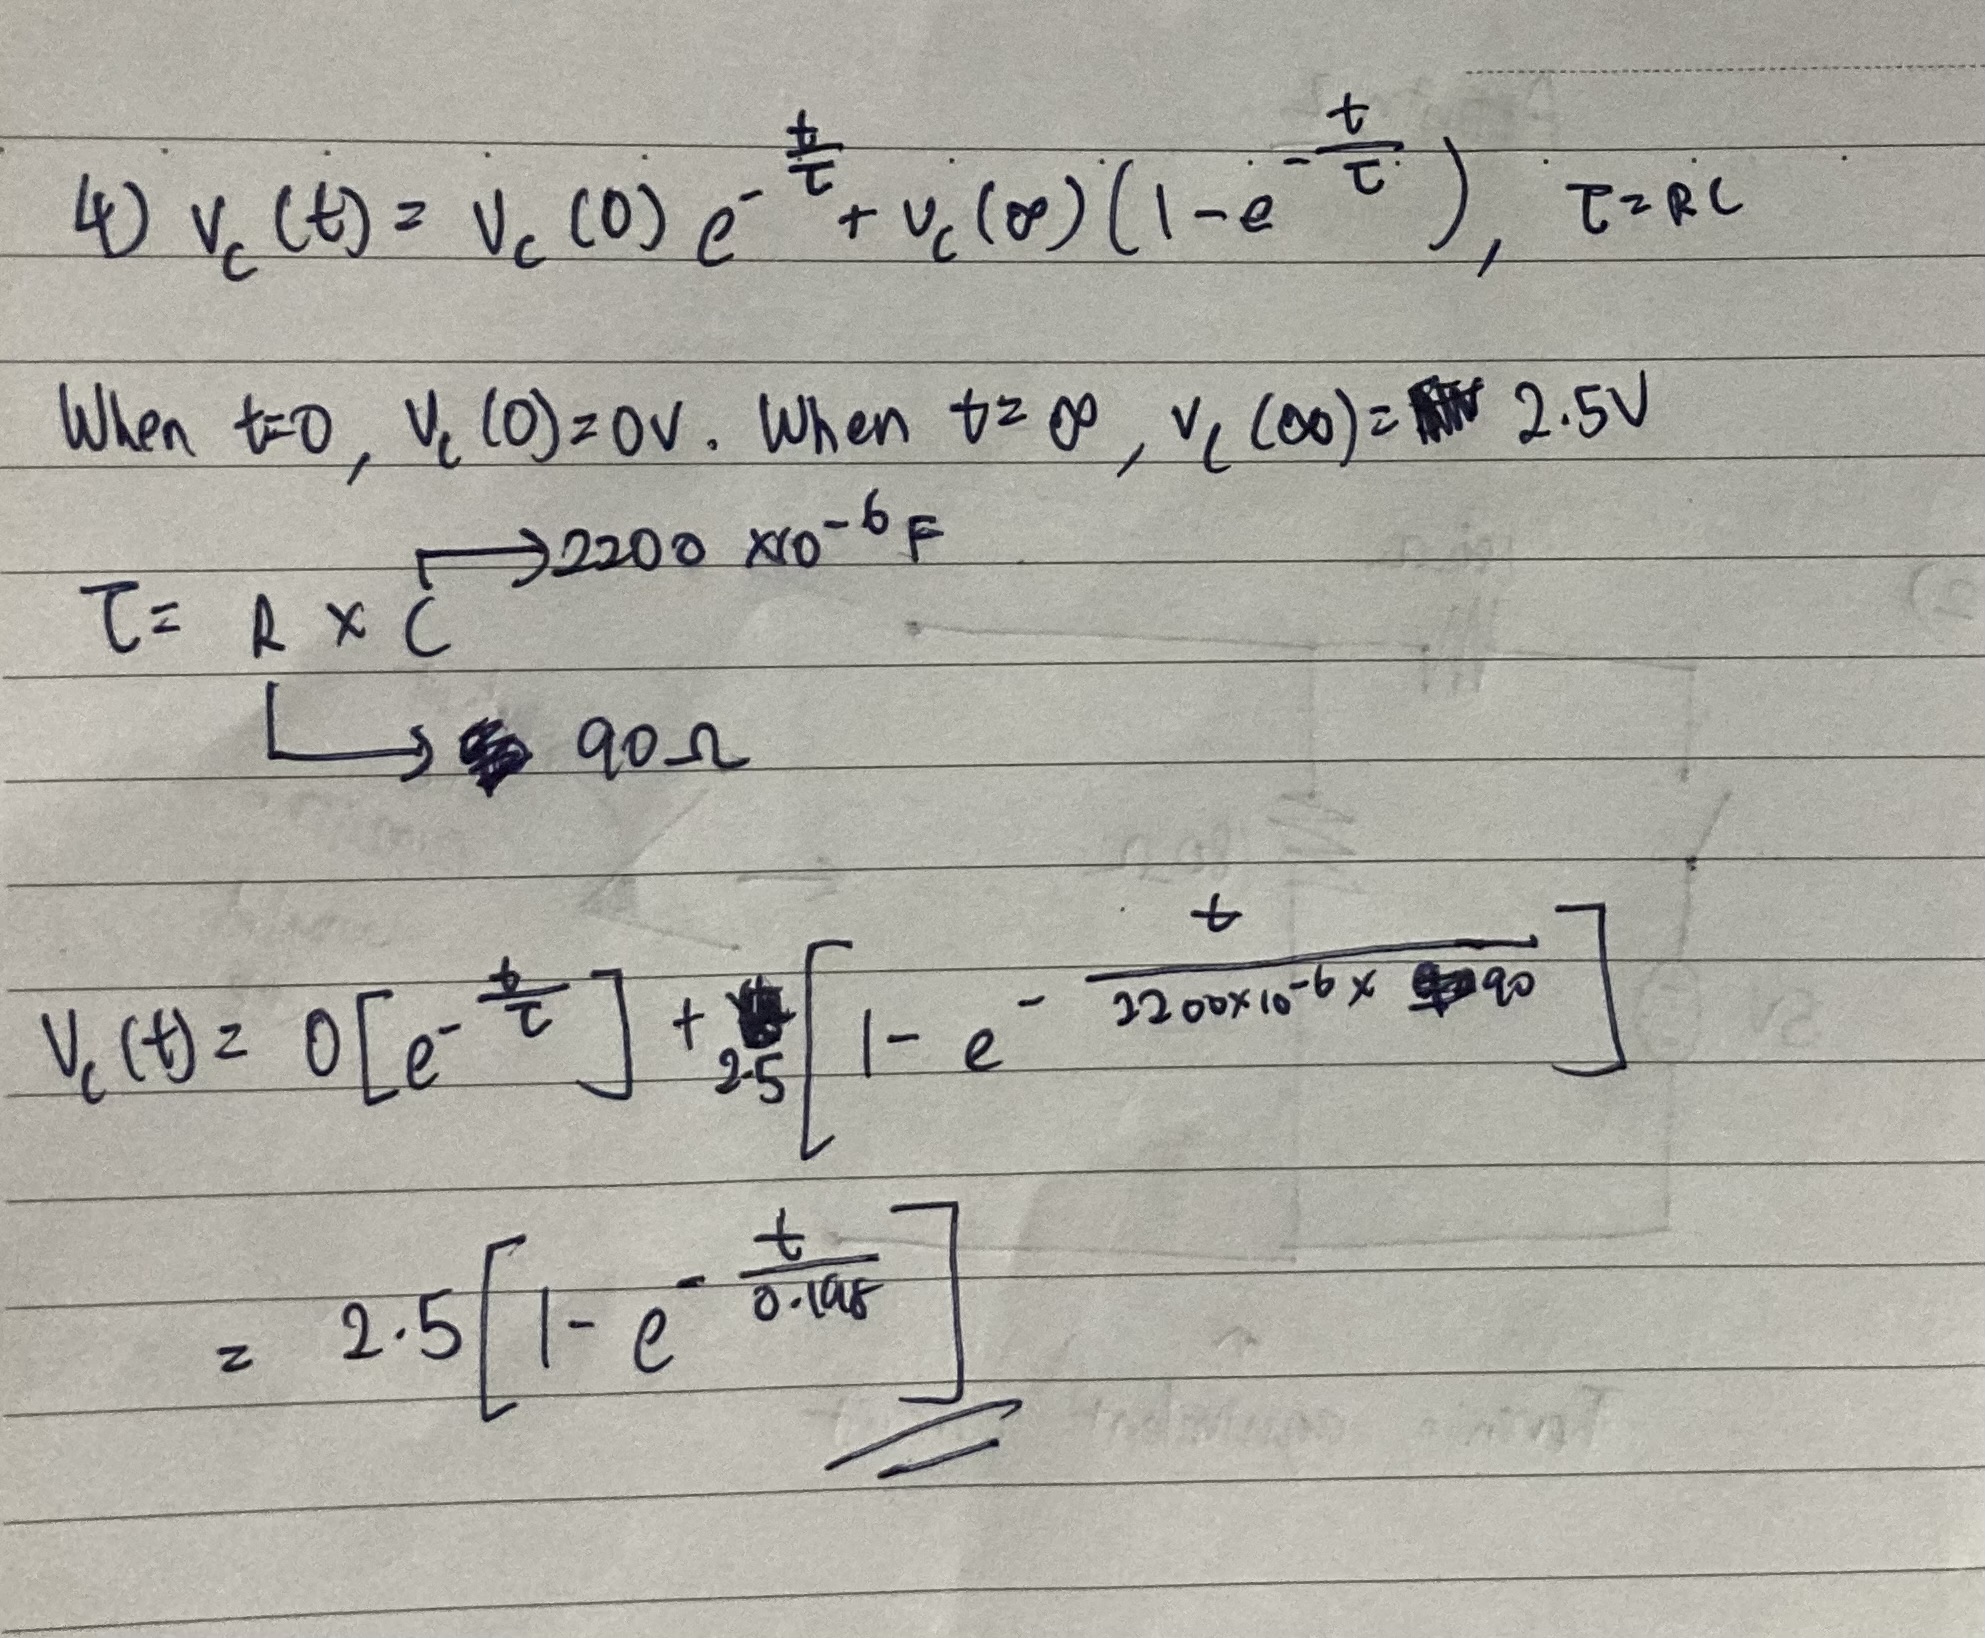 4) Vc(t) = Vc(0) e^(-t/τ) + Vc(∞)(1-e^(-t/τ)), τ=RC
When t=0, Vc(0)=0V. When t=∞, Vc(∞)= 2.5V
→2200 ×10^-6 F
τ= R × C
→ 90Ω
Vc(t)= 0[e^(-t/τ)] + 2.5[1-e^(-t/(2200×10^-6 × 90))]
= 2.5[1-e^(-t/0.198)]